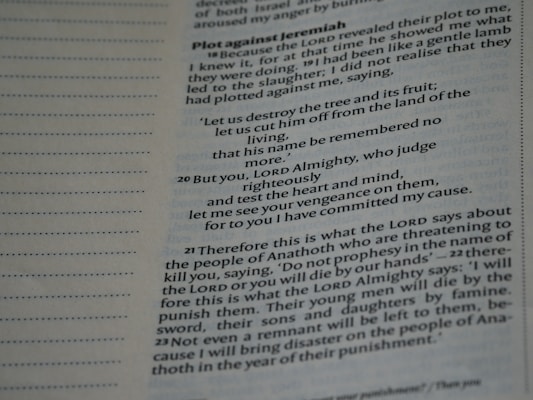 of both Israel and
aroused my anger by burning
Plot against Jeremiah
18 Because the LORD revealed their plot to me,
I knew it, for at that time he showed me what
they were doing. 19 I had been like a gentle lamb
led to the slaughter; I did not realise that they
had plotted against me, saying,
‘Let us destroy the tree and its fruit;
let us cut him off from the land of the
living,
that his name be remembered no
more.’
20 But you, LORD Almighty, who judge
righteously
and test the heart and mind,
let me see your vengeance on them,
for to you I have committed my cause.
21 Therefore this is what the LORD says about
the people of Anathoth who are threatening to
kill you, saying, ‘Do not prophesy in the name of
the LORD or you will die by our hands’ – 22 there-
fore this is what the LORD Almighty says: ‘I will
punish them. Their young men will die by the
sword, their sons and daughters by famine.
23 Not even a remnant will be left to them, be-
cause I will bring disaster on the people of Ana-
thoth in the year of their punishment.’
your punishment? / Then you